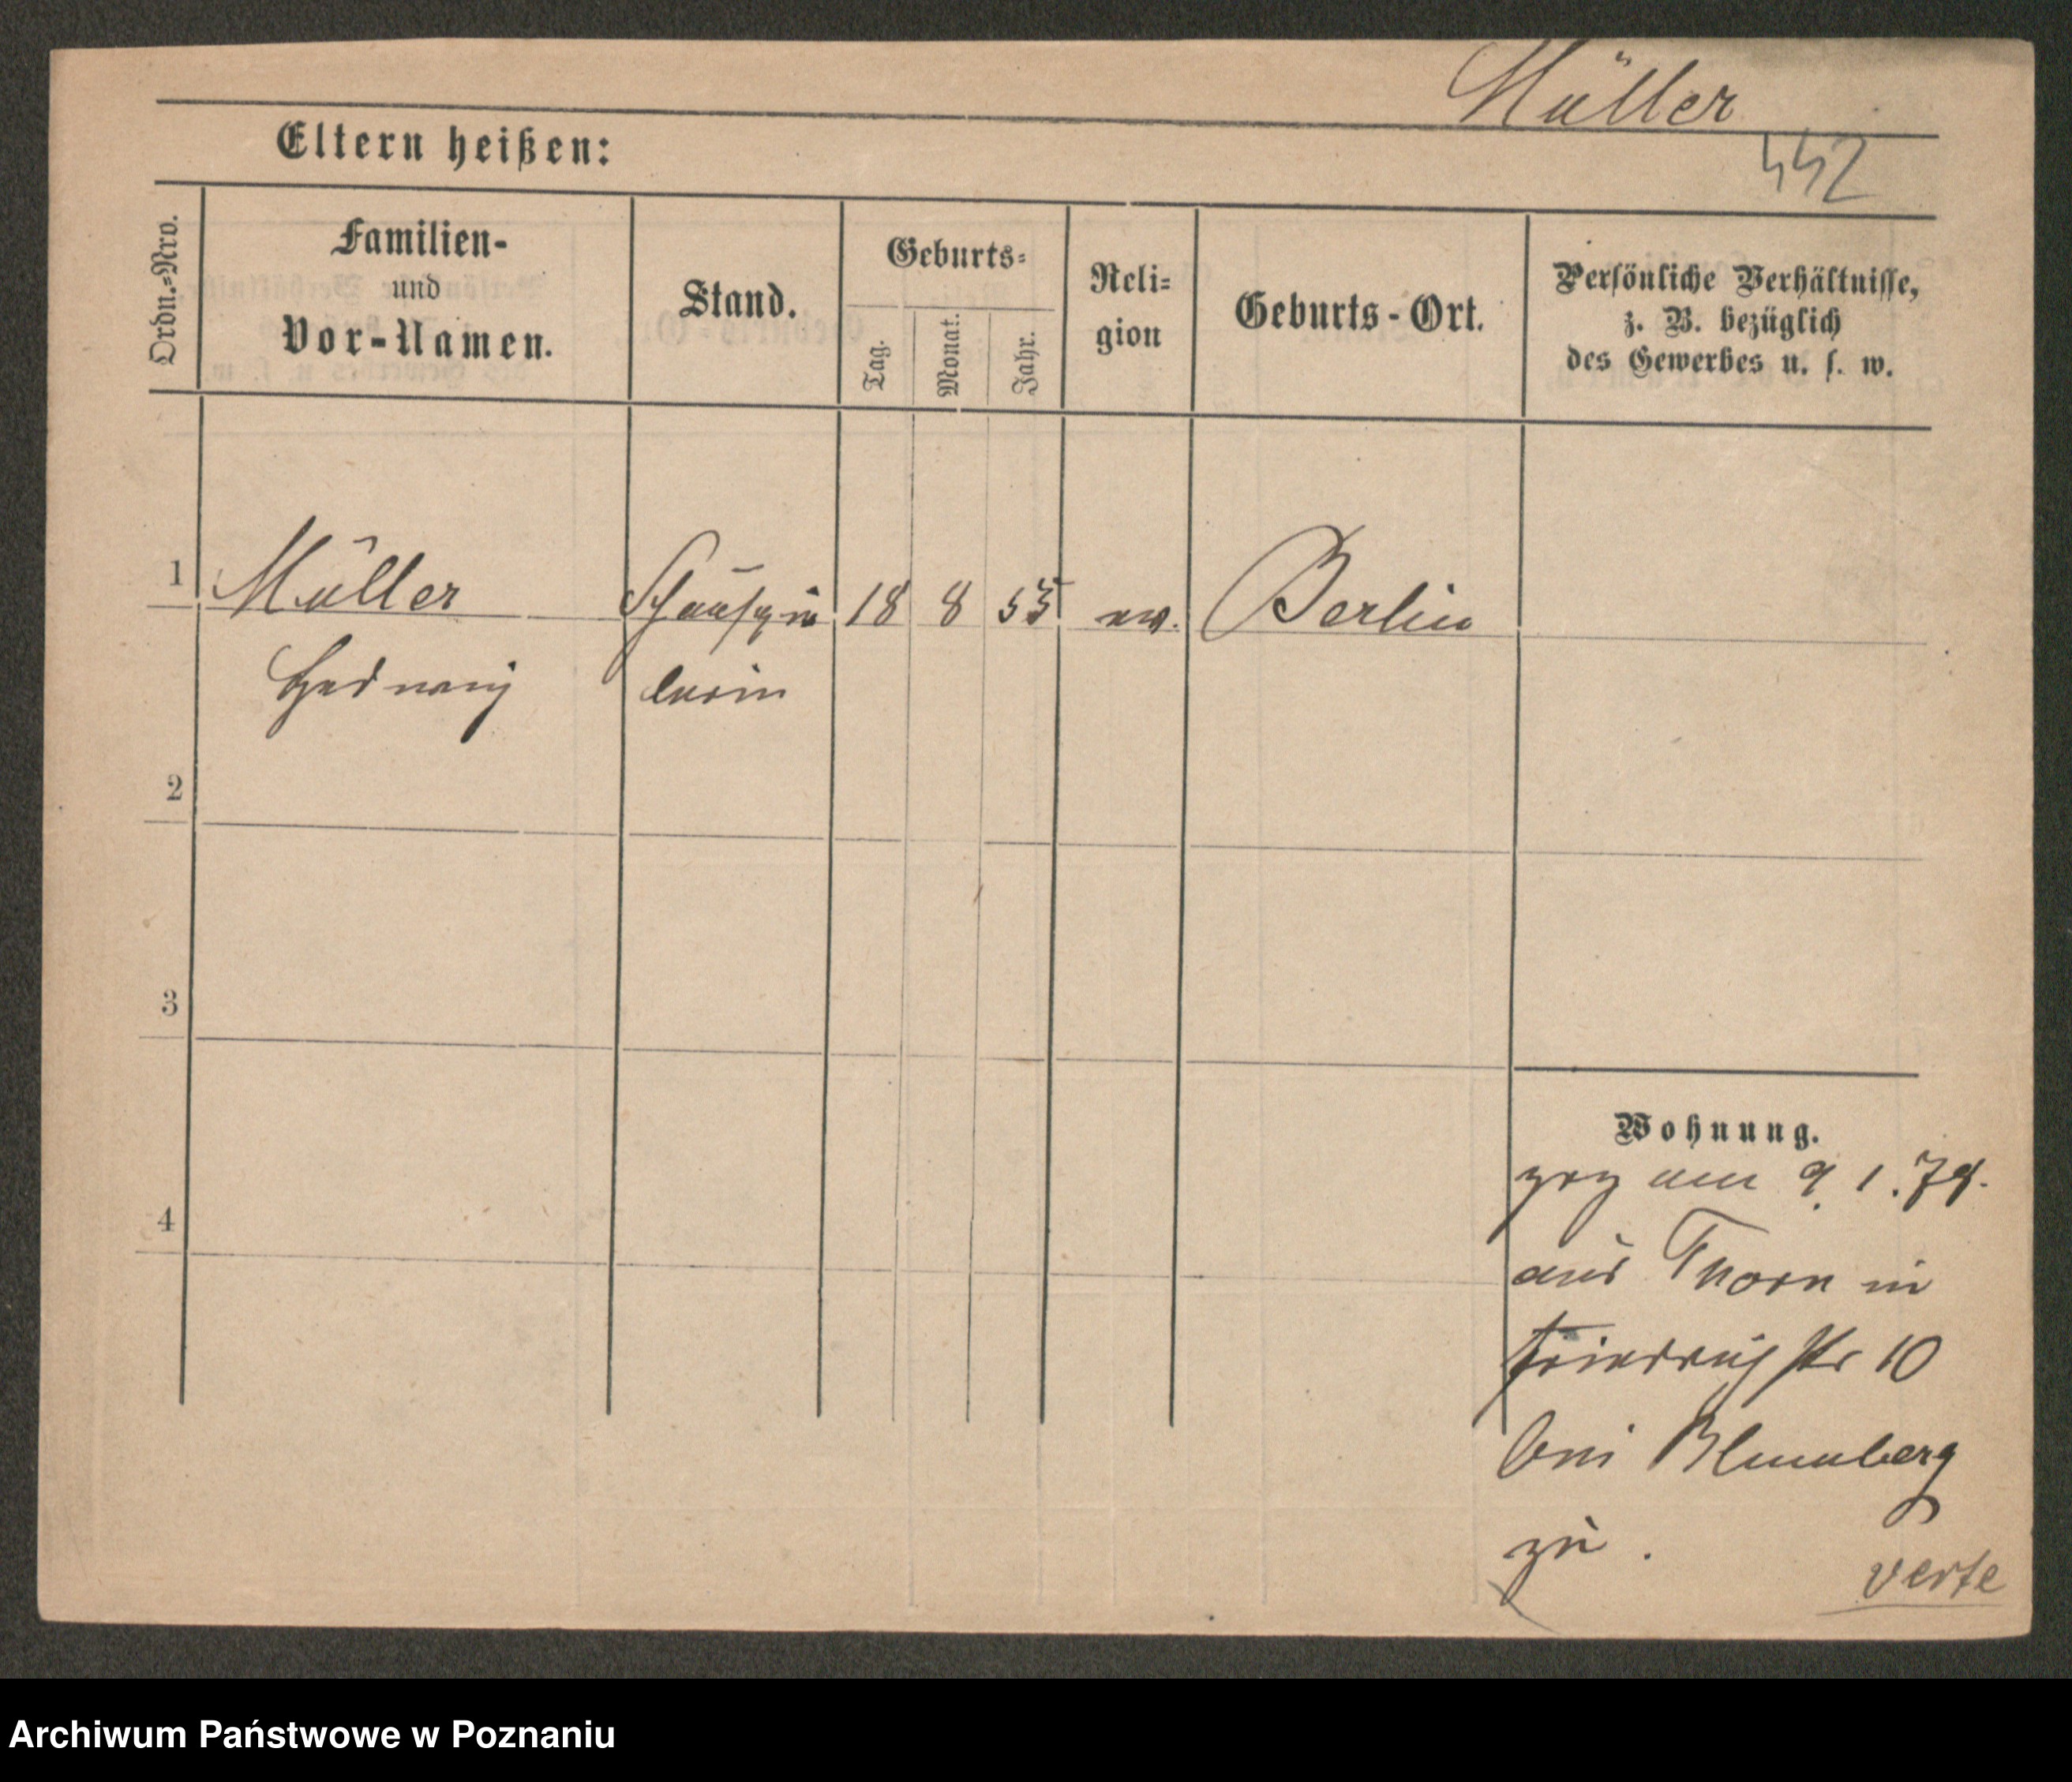 Müller
Eltern heißen:
442
Ordn.-Nro.
Familien-
und
Vor-Namen.
Stand.
Geburts-
Tag.
Monat.
Jahr.
Reli-
gion
Geburts-Ort.
Persönliche Verhältnisse,
z. B. bezüglich
des Gewerbes u. s. w.
1 Müller Schauspie 18 8 55 ev. Berlin
Hedwig lerin
2
3
4
Wohnung.
zog am 9. 1. 79.
aus Thorn in
Friedrichstr 10
bei Blumberg
zu.
verte
Archiwum Państwowe w Poznaniu